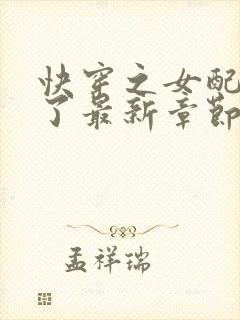 快穿之女配
了最新章節
孟祥瑞